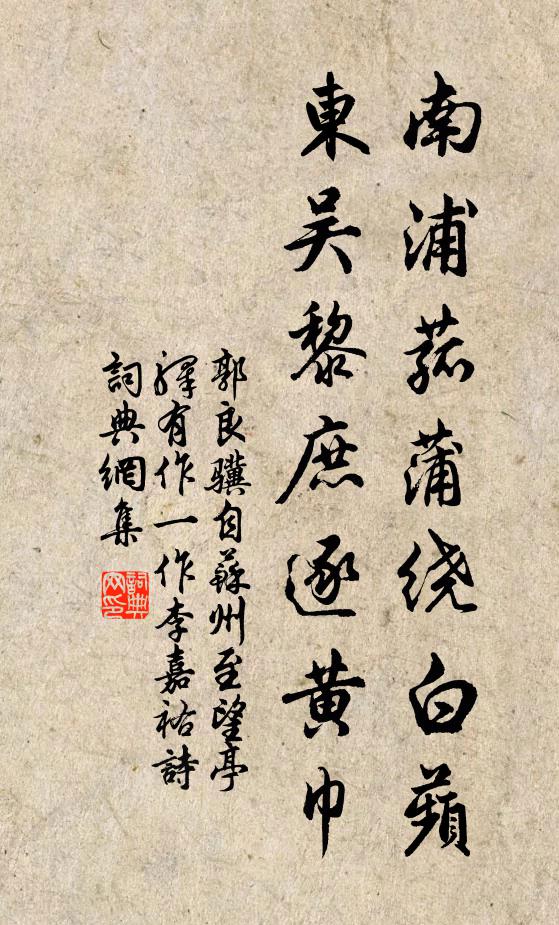 南浦菰蒲绕白蘋
東吴黎庶逐黄巾
郭良驥自蘇州至望亭
驛有作一作李嘉祐詩
詞典網集
詞典
网印